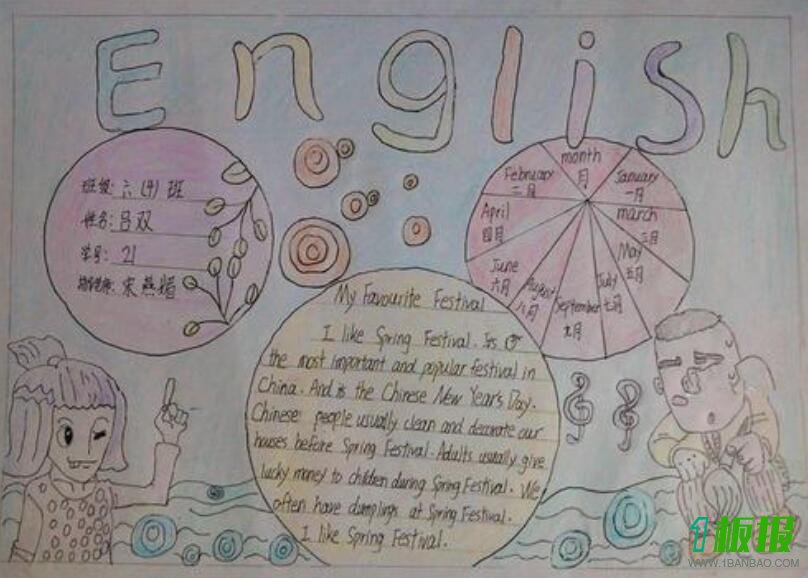 English
班级: 六 (4) 班
姓名: 吕双
学号: 21
指导老师: 宋燕媚
month
月
January
一月
February
二月
march
三月
April
四月
May
五月
June
六月
July
七月
August
八月
September
九月
My Favourite Festival
I like Spring Festival. It's
the most important and popular festival in
China. And is the Chinese New Year's Day.
Chinese people usually clean and decorate our
houses before Spring Festival. Adults usually give
lucky money to children during Spring Festival. We
often have dumplings at Spring Festival.
I like Spring Festival.
1板报
WWW.1BANBAO.COM